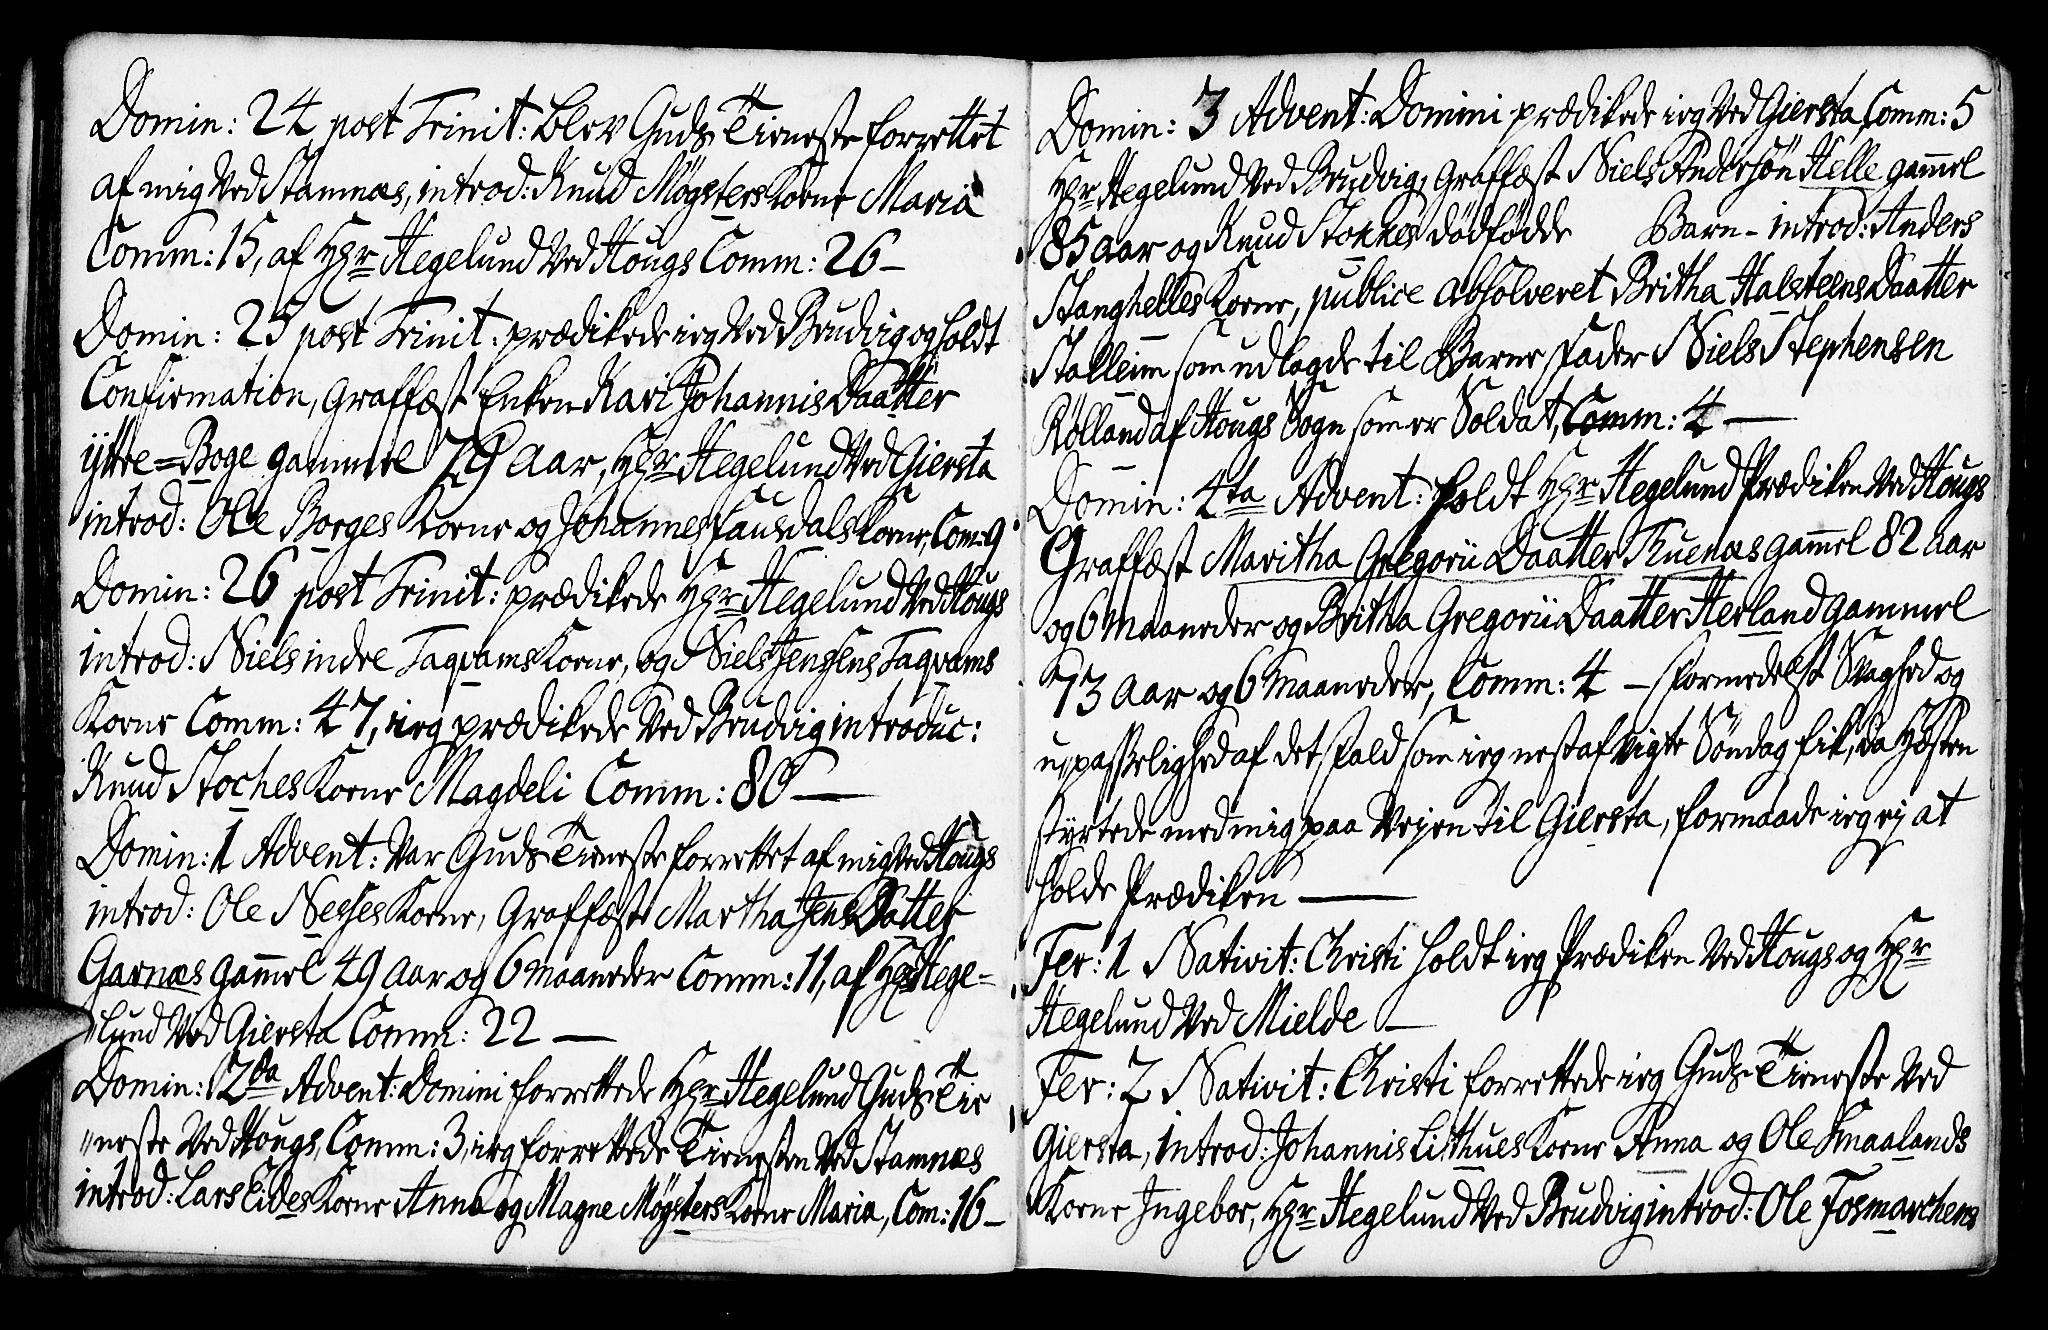 Domin: 24 post Trinit: blev Guds Tieneste forrettet
af mig Ved Stamnæs, introd: Knud Møgsters Kone Maria
Comm: 15, af Hr Hegelund Ved Hougs Comm: 26 -
Domin: 25 post Trinit: prædikede ieg Ved Brudvig og holdt
Confirmation, Graffæst Enken Kari Johannis Daatter
ÿtre=Boge gammel 79 Aar, Hr Hegelund Ved Giersta
introd: Ole Borges Kone og Johannes Fausdals Kone, Com: 9
Domin: 26 post Trinit: prædikede Hr Hegelund Ved Hougs
introd: Niels indre Taqvams Kone, og Niels Jensens Taqvams
Kone Comm: 47, ieg prædikede Ved Brudvig introduc:
Knud Stoches Kone Magdeli Comm: 80 —
Domin: 1 Advent: Var Guds Tieneste forrettet af mig Ved Hougs
introd: Ole Nesses Kone, Graffæst Martha Jens Datter
Garnæs gamel 49 Aar og 6 maaneder Comm: 11, af Hr Hege-
"lund Ved Giersta Comm: 22 —
Domin: 2da Advent: Domini forrettede Hr Hegelund Guds Tie
"neste Ved Hougs, Comm: 3, ieg forrettede Tienesten Ved Stamnæs
introd: Lars Eides Kone Anna og Magne Møgsters Kone Maria, Com: 16 -
Domin: 3 Advent: Domini prædikede ieg Ved Giersta, Comm: 5
Hr Hegelund Ved Brudvig, Graffæst Niels Andersøn Helle gamel
85 Aar og Knud Stokkes dødfødde Barn - introd: Anders
Stanghelles Kone, publice absolveret Britha Halsteens Daatter
Stalleim som udlagde til Barne Fader Niels Stephensen
Rølland af Hougs Sogn som er Soldat, Comm: 4 —
Domin: 4ta Advent: holdt Hr Hegelund Prædiken Ved Hougs
Graffæst Maritha Gregorii Daatter Tuenæs gamel 82 Aar
og 6 maaneder og Britha Gregorii Daatter Herland gammel
73 Aar og 6 maaneder, Comm: 4 - formedelst Svaghed og
upasselighed af det Fald som ieg nestafvigte Søndag fik, da Hæsten
styrtede med mig paa Vejen til Giersta, formaade ieg ej at
holde Prædiken —
Fer: 1 Nativit: Christi holdt ieg Prædiken Ved Hougs og Hr
Hegelund Ved Mielde —
Fer: 2 Nativit: Christi forrettede ieg Guds Tieneste Ved
Giersta, introd: Johannis Listhues Kone Anna og Ole Smaalands
Kone Ingebor, Hr Hegelund Ved Brudvig introd: Ole Fosmarchens